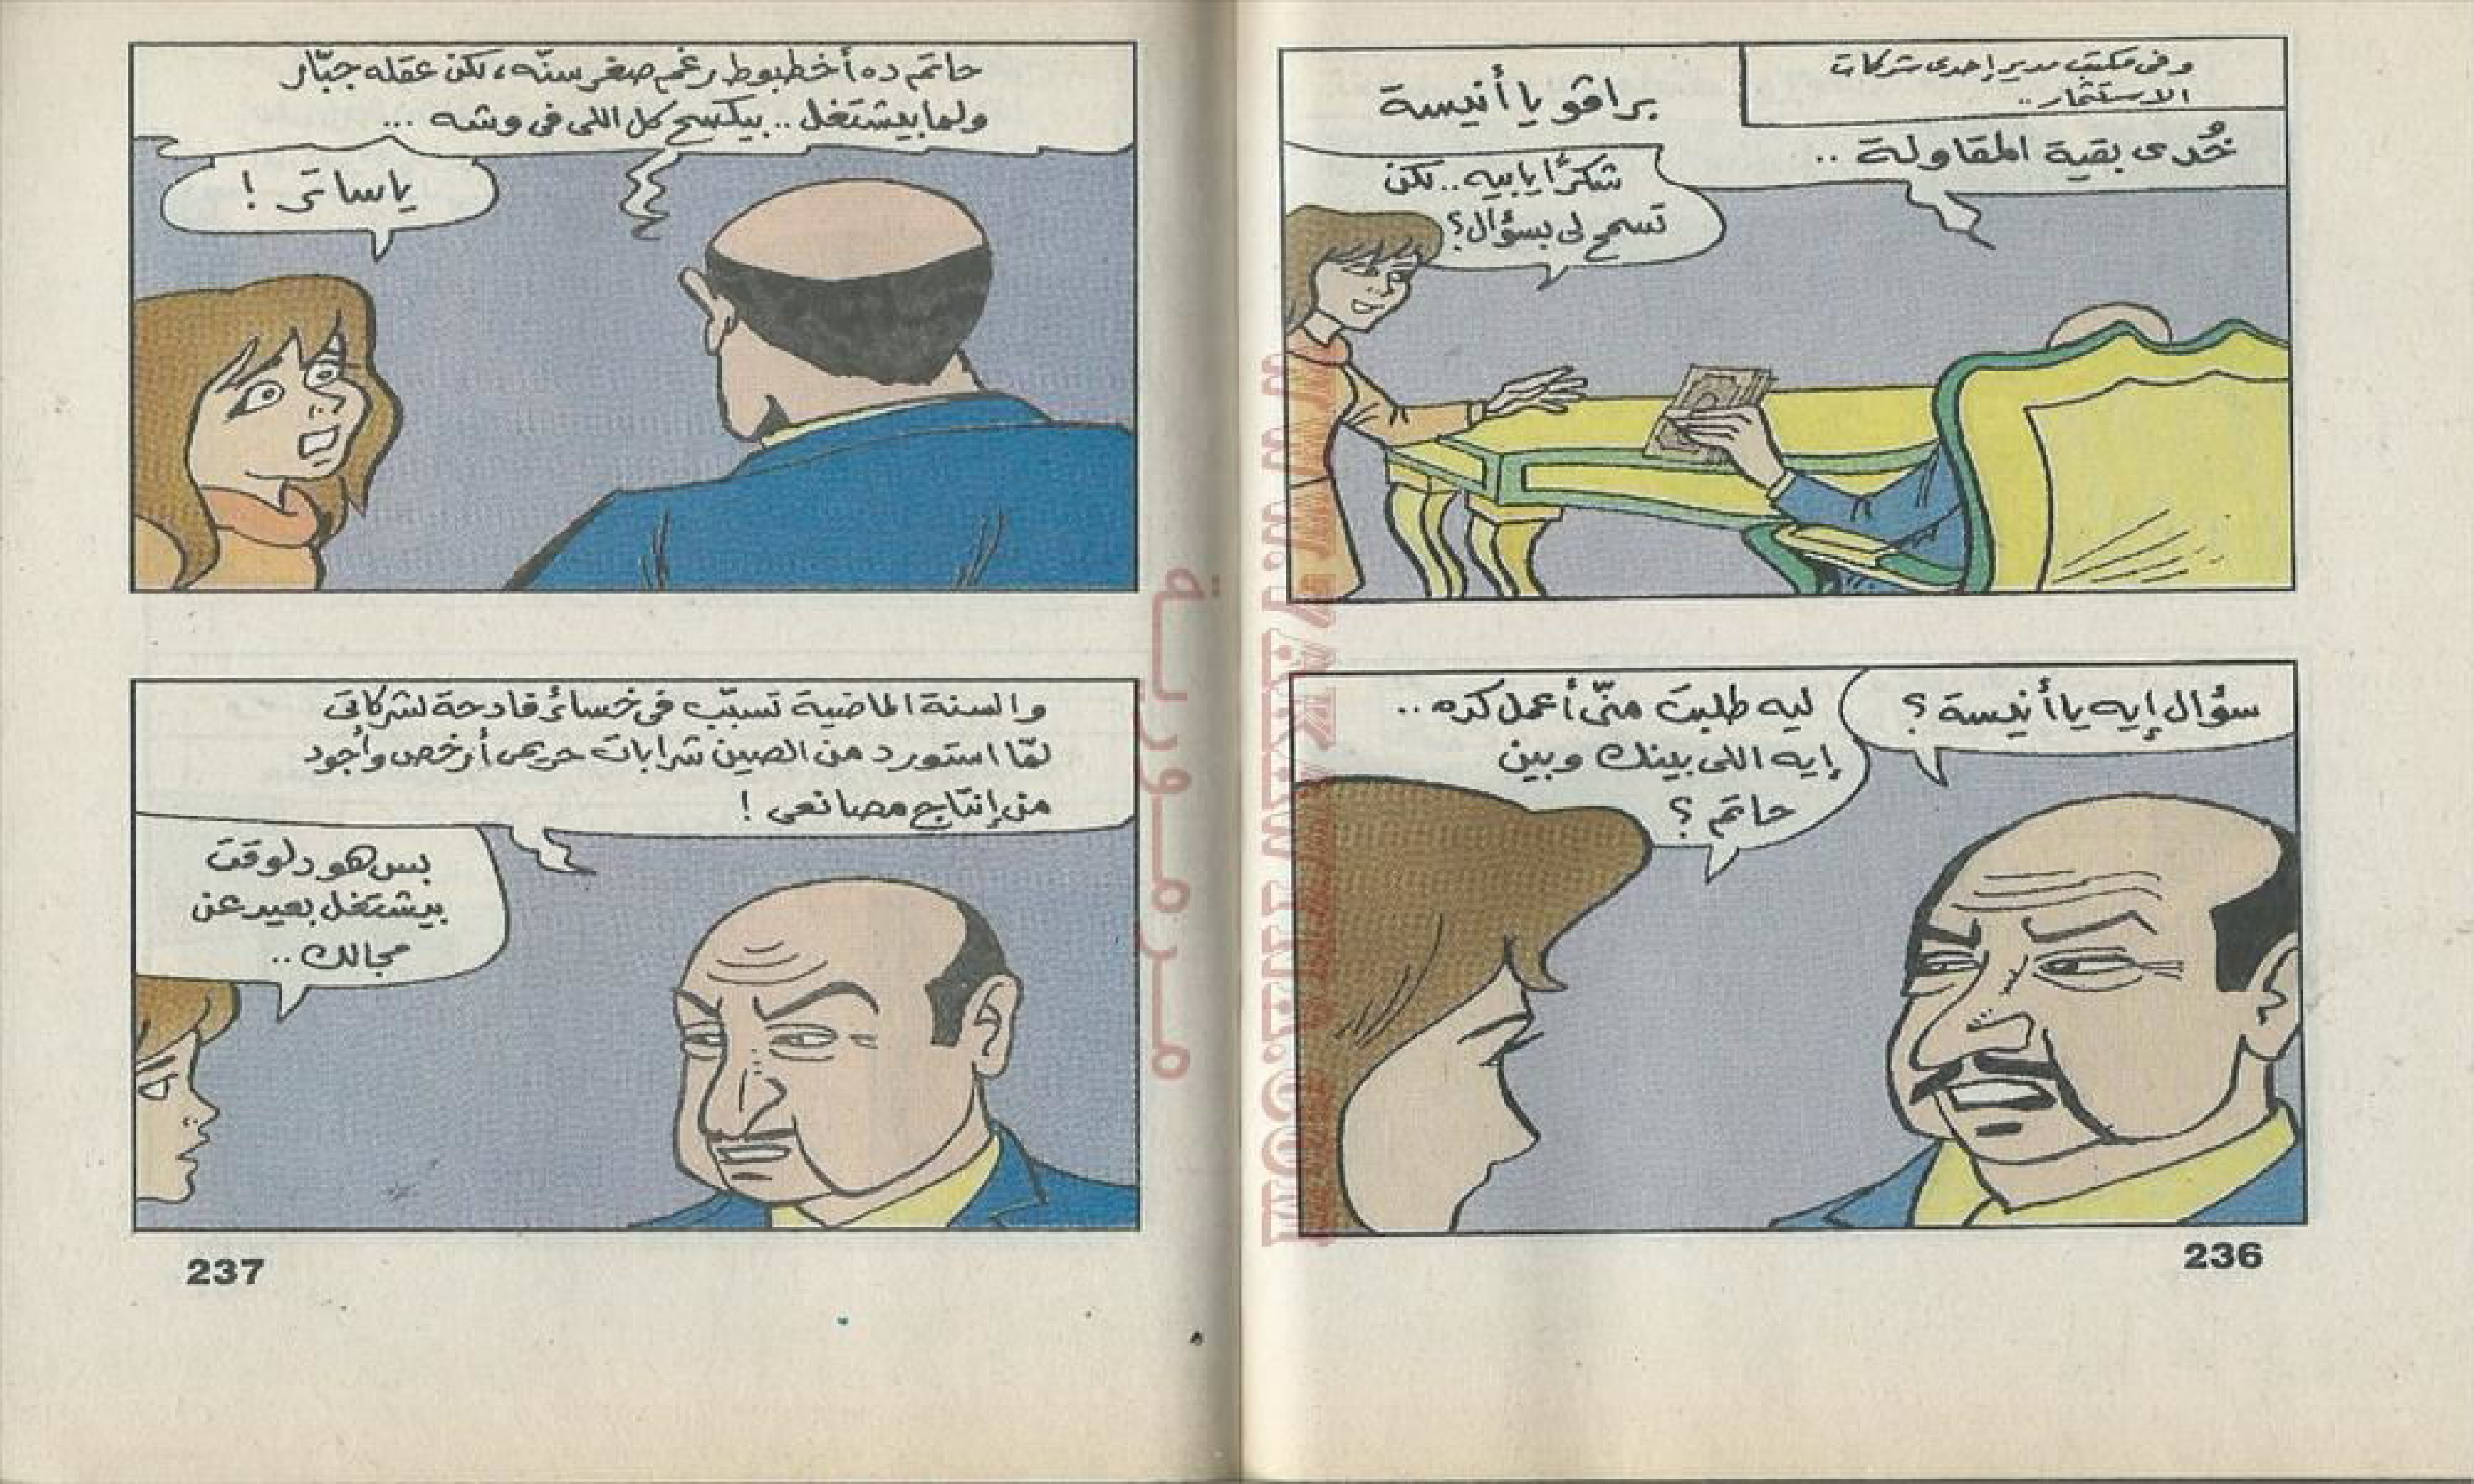 وفى مكتب مدير إحدى شركات
الاستثمار..
براڤو يا أنيسة
خُدى بقية المقاولة ..
شكرًا يا بيه.. لكن
تسمح لى بسؤال؟
سؤال إيه يا أنيسة؟
ليه طلبت منّى أعمل كده..
إيه اللى بينك وبين
حاتم؟
236
حاتم ده أخطبوط رغم صغر سنّه، لكن عقله جبّار
ولما بيشتغل.. بيكسح كل اللى فى وشه ...
ياساتر !
والسنة الماضية تسبّب فى خسائر فادحة لشركاتى
لمّا استورد من الصين شرابات حريمى أرخص وأجود
من إنتاج مصانعى !
بس هو دلوقت
بيشتغل بعيد عن
مجالك ..
237